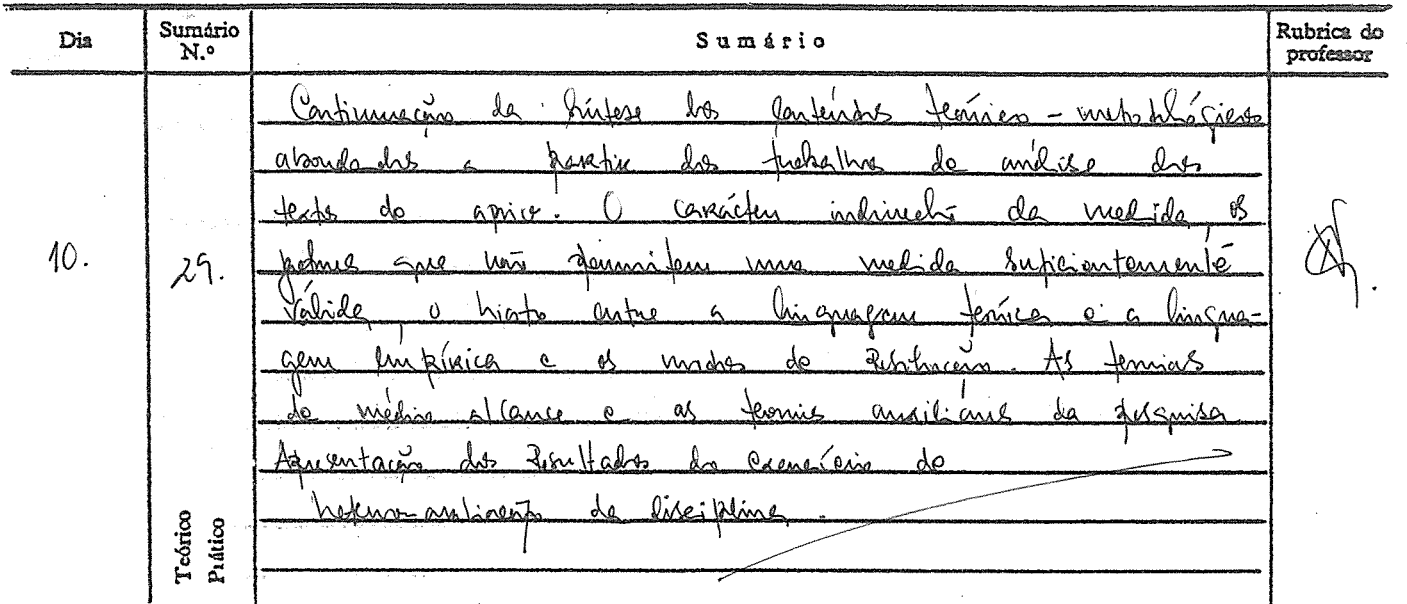 Dia
Sumário N.º
Sumário
Rubrica do professor
10.
29.
Continuação da síntese dos conteúdos teórico-metodológicos
abordados a partir dos trabalhos de análise dos
textos de apoio. O carácter indirecto da medida os
que não permitem uma medida suficientemente
válida, o hiato entre a linguagem teórica e a lingua-
gem empírica e os modos de restituição. As teorias
de médio alcance e as teorias auxiliares da pesquisa
Apresentação dos resultados do exercício de
hetero-avaliação da disciplina.
Teórico
Prático